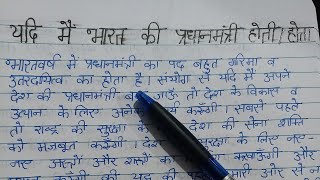 यदि मैं भारत की प्रधानमंत्री होती/होता
भारतवर्ष में प्रधानमंत्री का पद बहुत गरिमा व
उत्तरदायित्व का होता है। संयोग से यदि मैं अपने
देश की प्रधानमंत्री बन जाऊँ तो देश के विकास व
उत्थान के लिए करूँगी। सबसे पहले
तो राष्ट्र की सुरक्षा देश की सेना शक्ति
को मजबूत करूँगी। सुरक्षा के लिए नए-
नए अस्त्रों और शस्त्रों का करवाऊँगी और